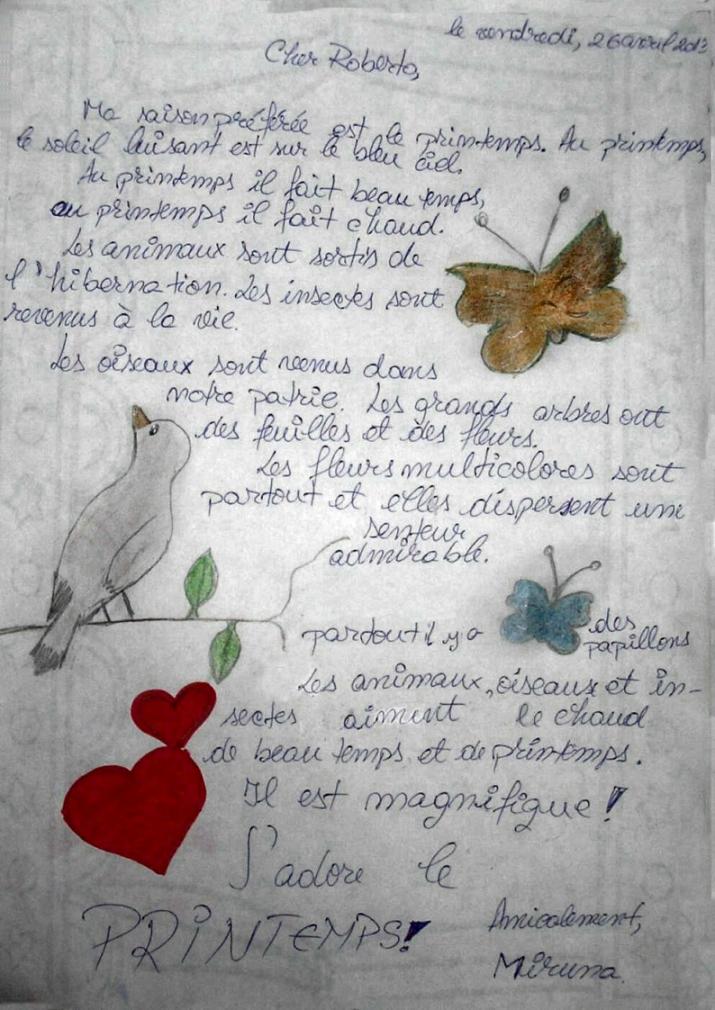 le vendredi, 26 avril 2013
Cher Roberto,
Ma saison préférée est le printemps. Au printemps,
le soleil luisant est sur le bleu ciel.
Au printemps il fait beau temps,
au printemps il fait chaud.
Les animaux sont sortis de
l'hibernation. Les insectes sont
revenus à la vie.
Les oiseaux sont venus dans
notre patrie. Les grands arbres ont
des feuilles et des fleurs.
Les fleurs multicolores sont
partout et elles dispersent une
senteur
admirable.
partout il y a des
papillons
Les animaux, oiseaux et in-
sectes aiment le chaud
de beau temps et de printemps.
Il est magnifique!
J'adore le
PRINTEMPS!
Amicalement,
Miruna.